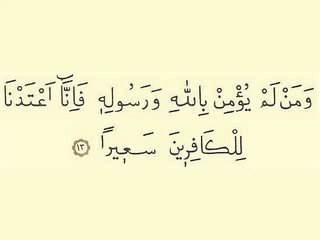 وَمَنْ لَمْ يُؤْمِنْ بِاللّٰهِ وَرَسُولِهٖ فَاِنَّٓا اَعْتَدْنَا
لِلْكَافِرٖينَ سَعٖيرًا ﴿١٣﴾